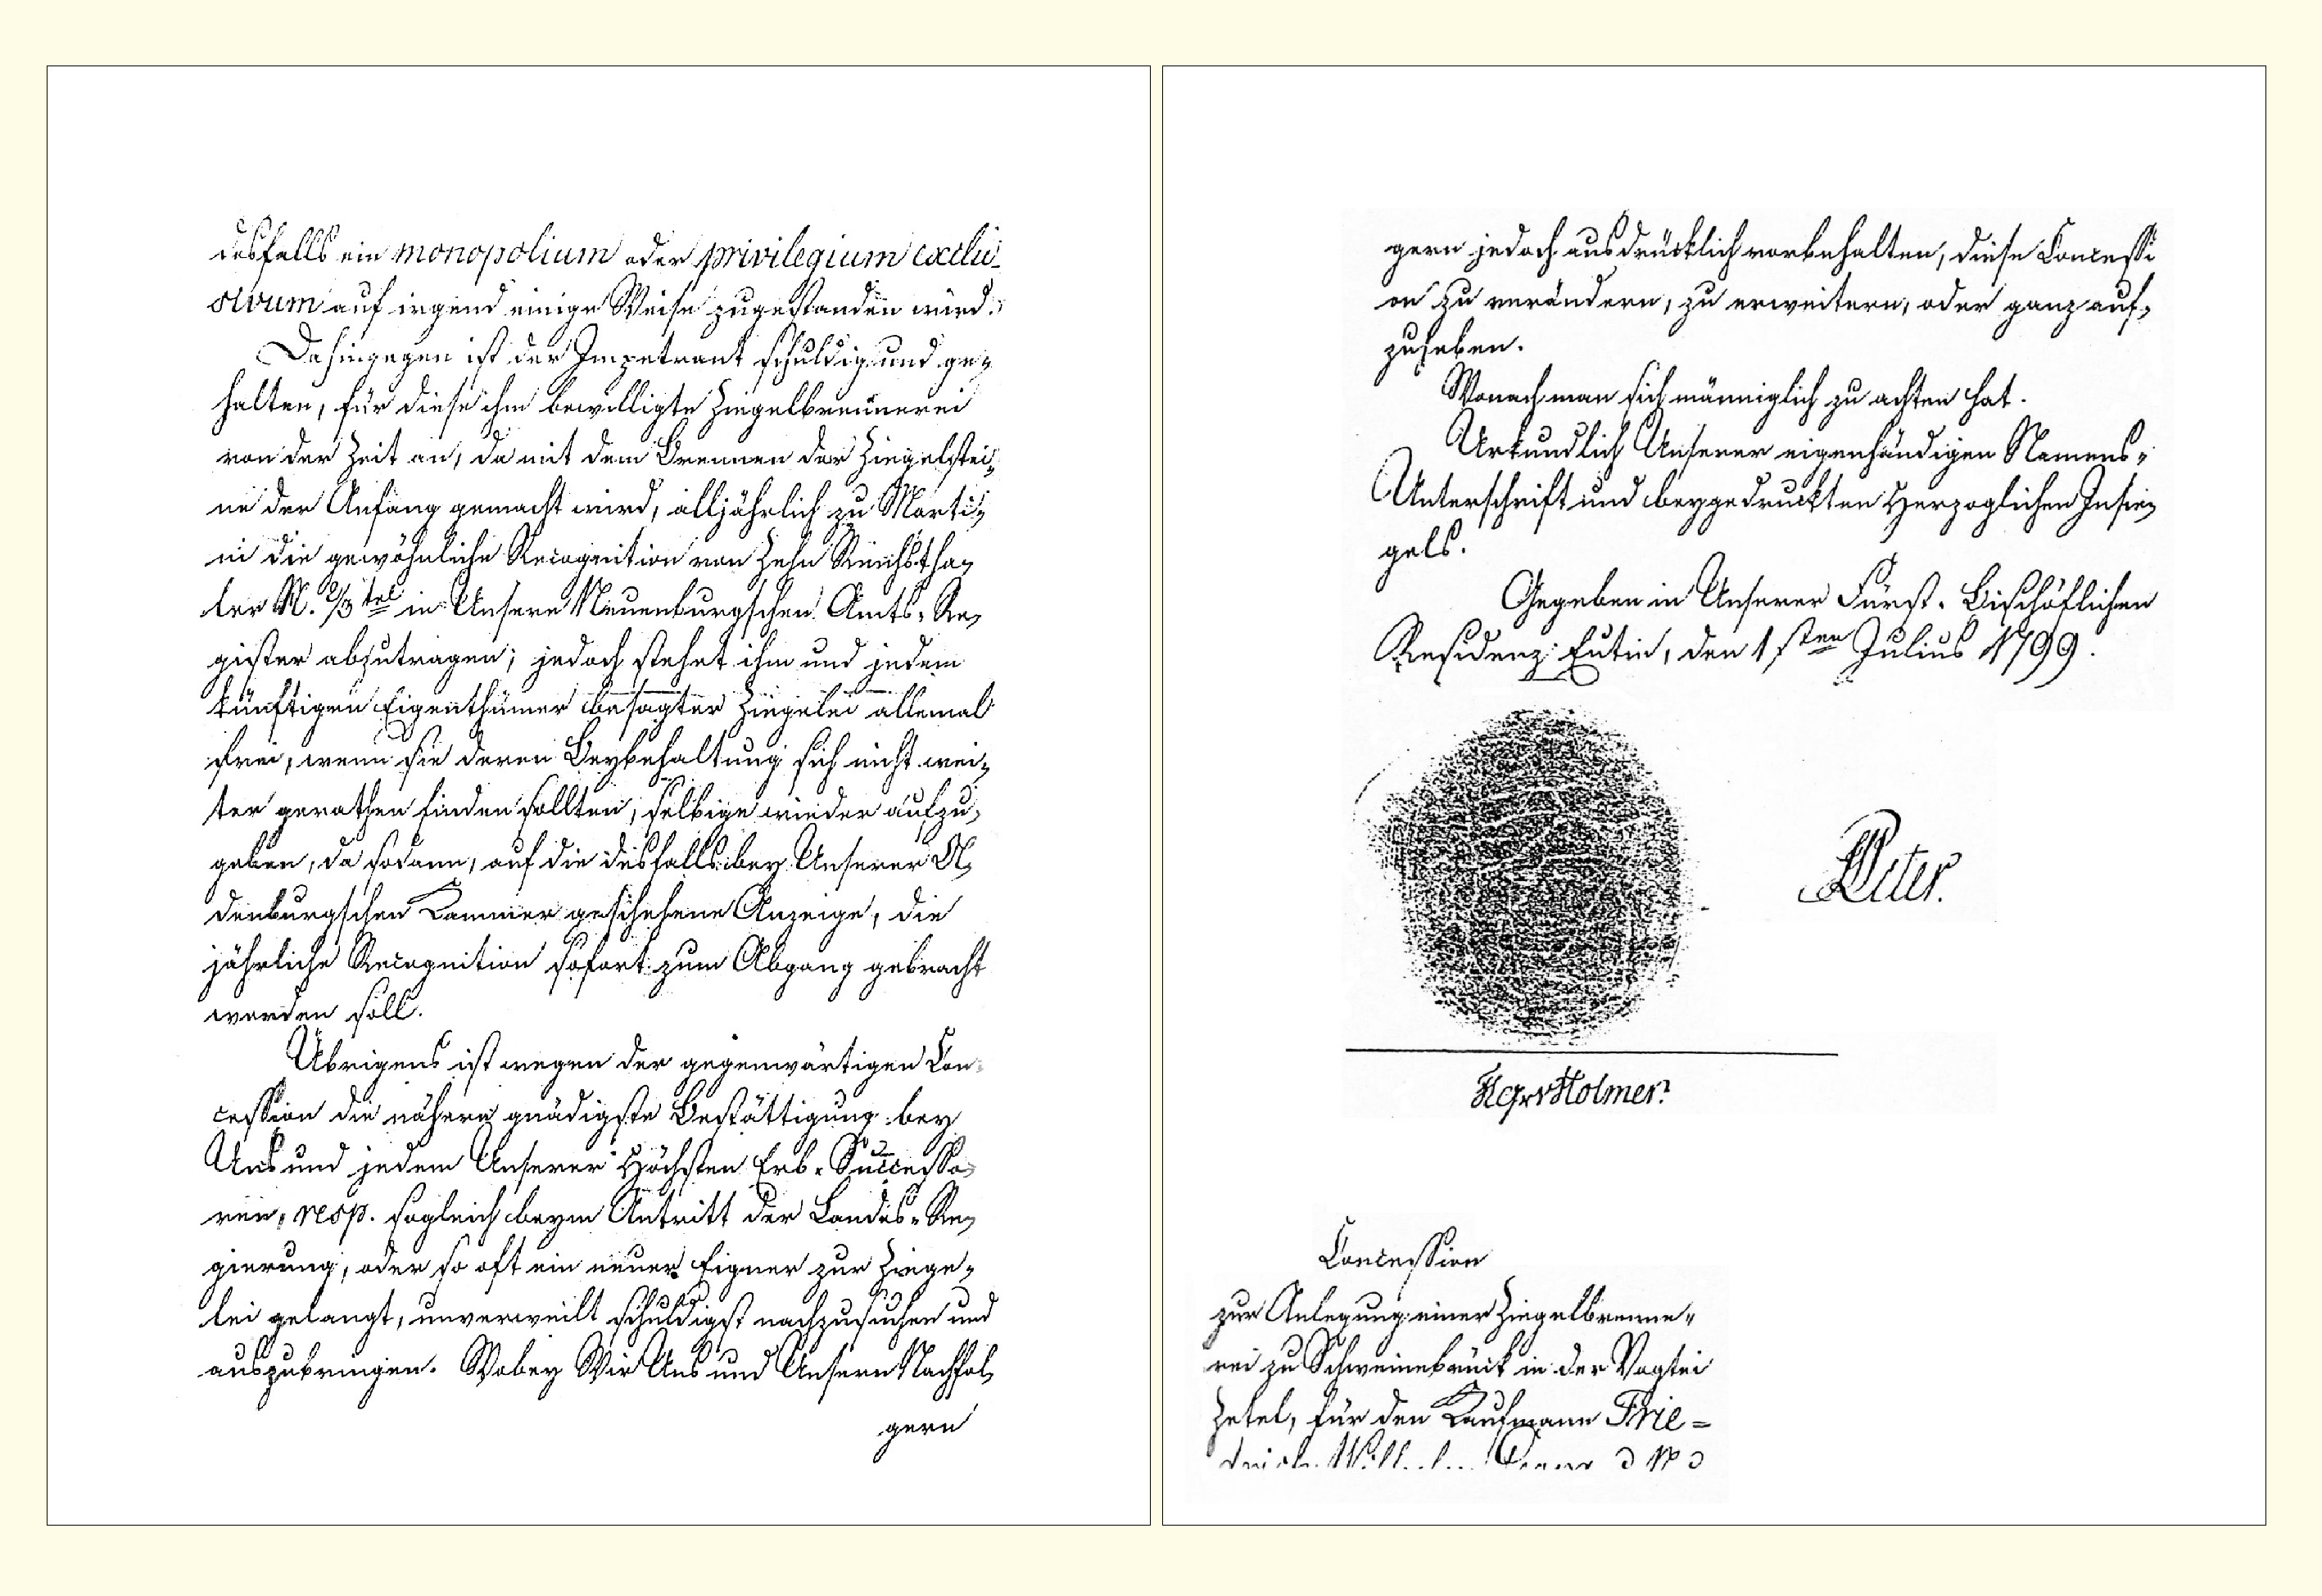 desfalls ein monopolium oder privilegium exclu-
sivum auf irgend einige Weise zugestanden wird.
Dahingegen ist der Impetrant schuldig und ge-
halten, für diese ihm bewilligte Ziegelbrennerei
von der Zeit an, da mit dem Brennen der Ziegelstei-
ne der Anfang gemacht wird, alljährlich zu Marti-
ni die gewöhnliche Recognition von Zehn Reichstha-
ler N. 2/3 tel in Unsere Neuenburgschen Amts-Re-
gister abzutragen; jedoch stehet ihm und jedem
künftigen Eigenthümer besagter Ziegelei allemal
frei, wenn sie deren Beybehaltung sich nicht wei-
ter gerathen finden sollten, selbige wieder aufzu-
geben, da sodann, auf die desfalls bey Unserer Ol-
denburgschen Cammer geschehene Anzeige, die
jährliche Recognition sofort zum Abgang gebracht
werden soll.
Übrigens ist wegen der gegenwärtigen Con-
cession die nähere gnädigste Bestättigung bey
Uns und jedem Unserer Höchsten Erb-Successo-
ren, resp. sogleich beym Antritt der Landes-Re-
gierung, oder so oft ein neuer Eigner zur Ziege-
lei gelangt, unverweilt schuldigst nachzusuchen und
auszubringen. Wobey Wir Uns und Unsern Nachfol-
gern
gern jedoch ausdrücklich vorbehalten, diese Concessi
on zu verändern, zu erweitern, oder ganz auf-
zuheben.
Wonach man sich männiglich zu achten hat.
Urkundlich Unserer eigenhändigen Namens-
Unterschrift und beygedruckten Herzoglichen Insie-
gels.
Gegeben in Unserer Fürst-Bischöflichen
Residenz Eutin, den 1sten Julius 1799.
Peter.
Holmer.
Concession
zur Anlegung einer Ziegelbrenne-
rei zu Schweinebrück in der Vogtei
Zetel, für den Kaufmann Frie=
drich Wilhelm